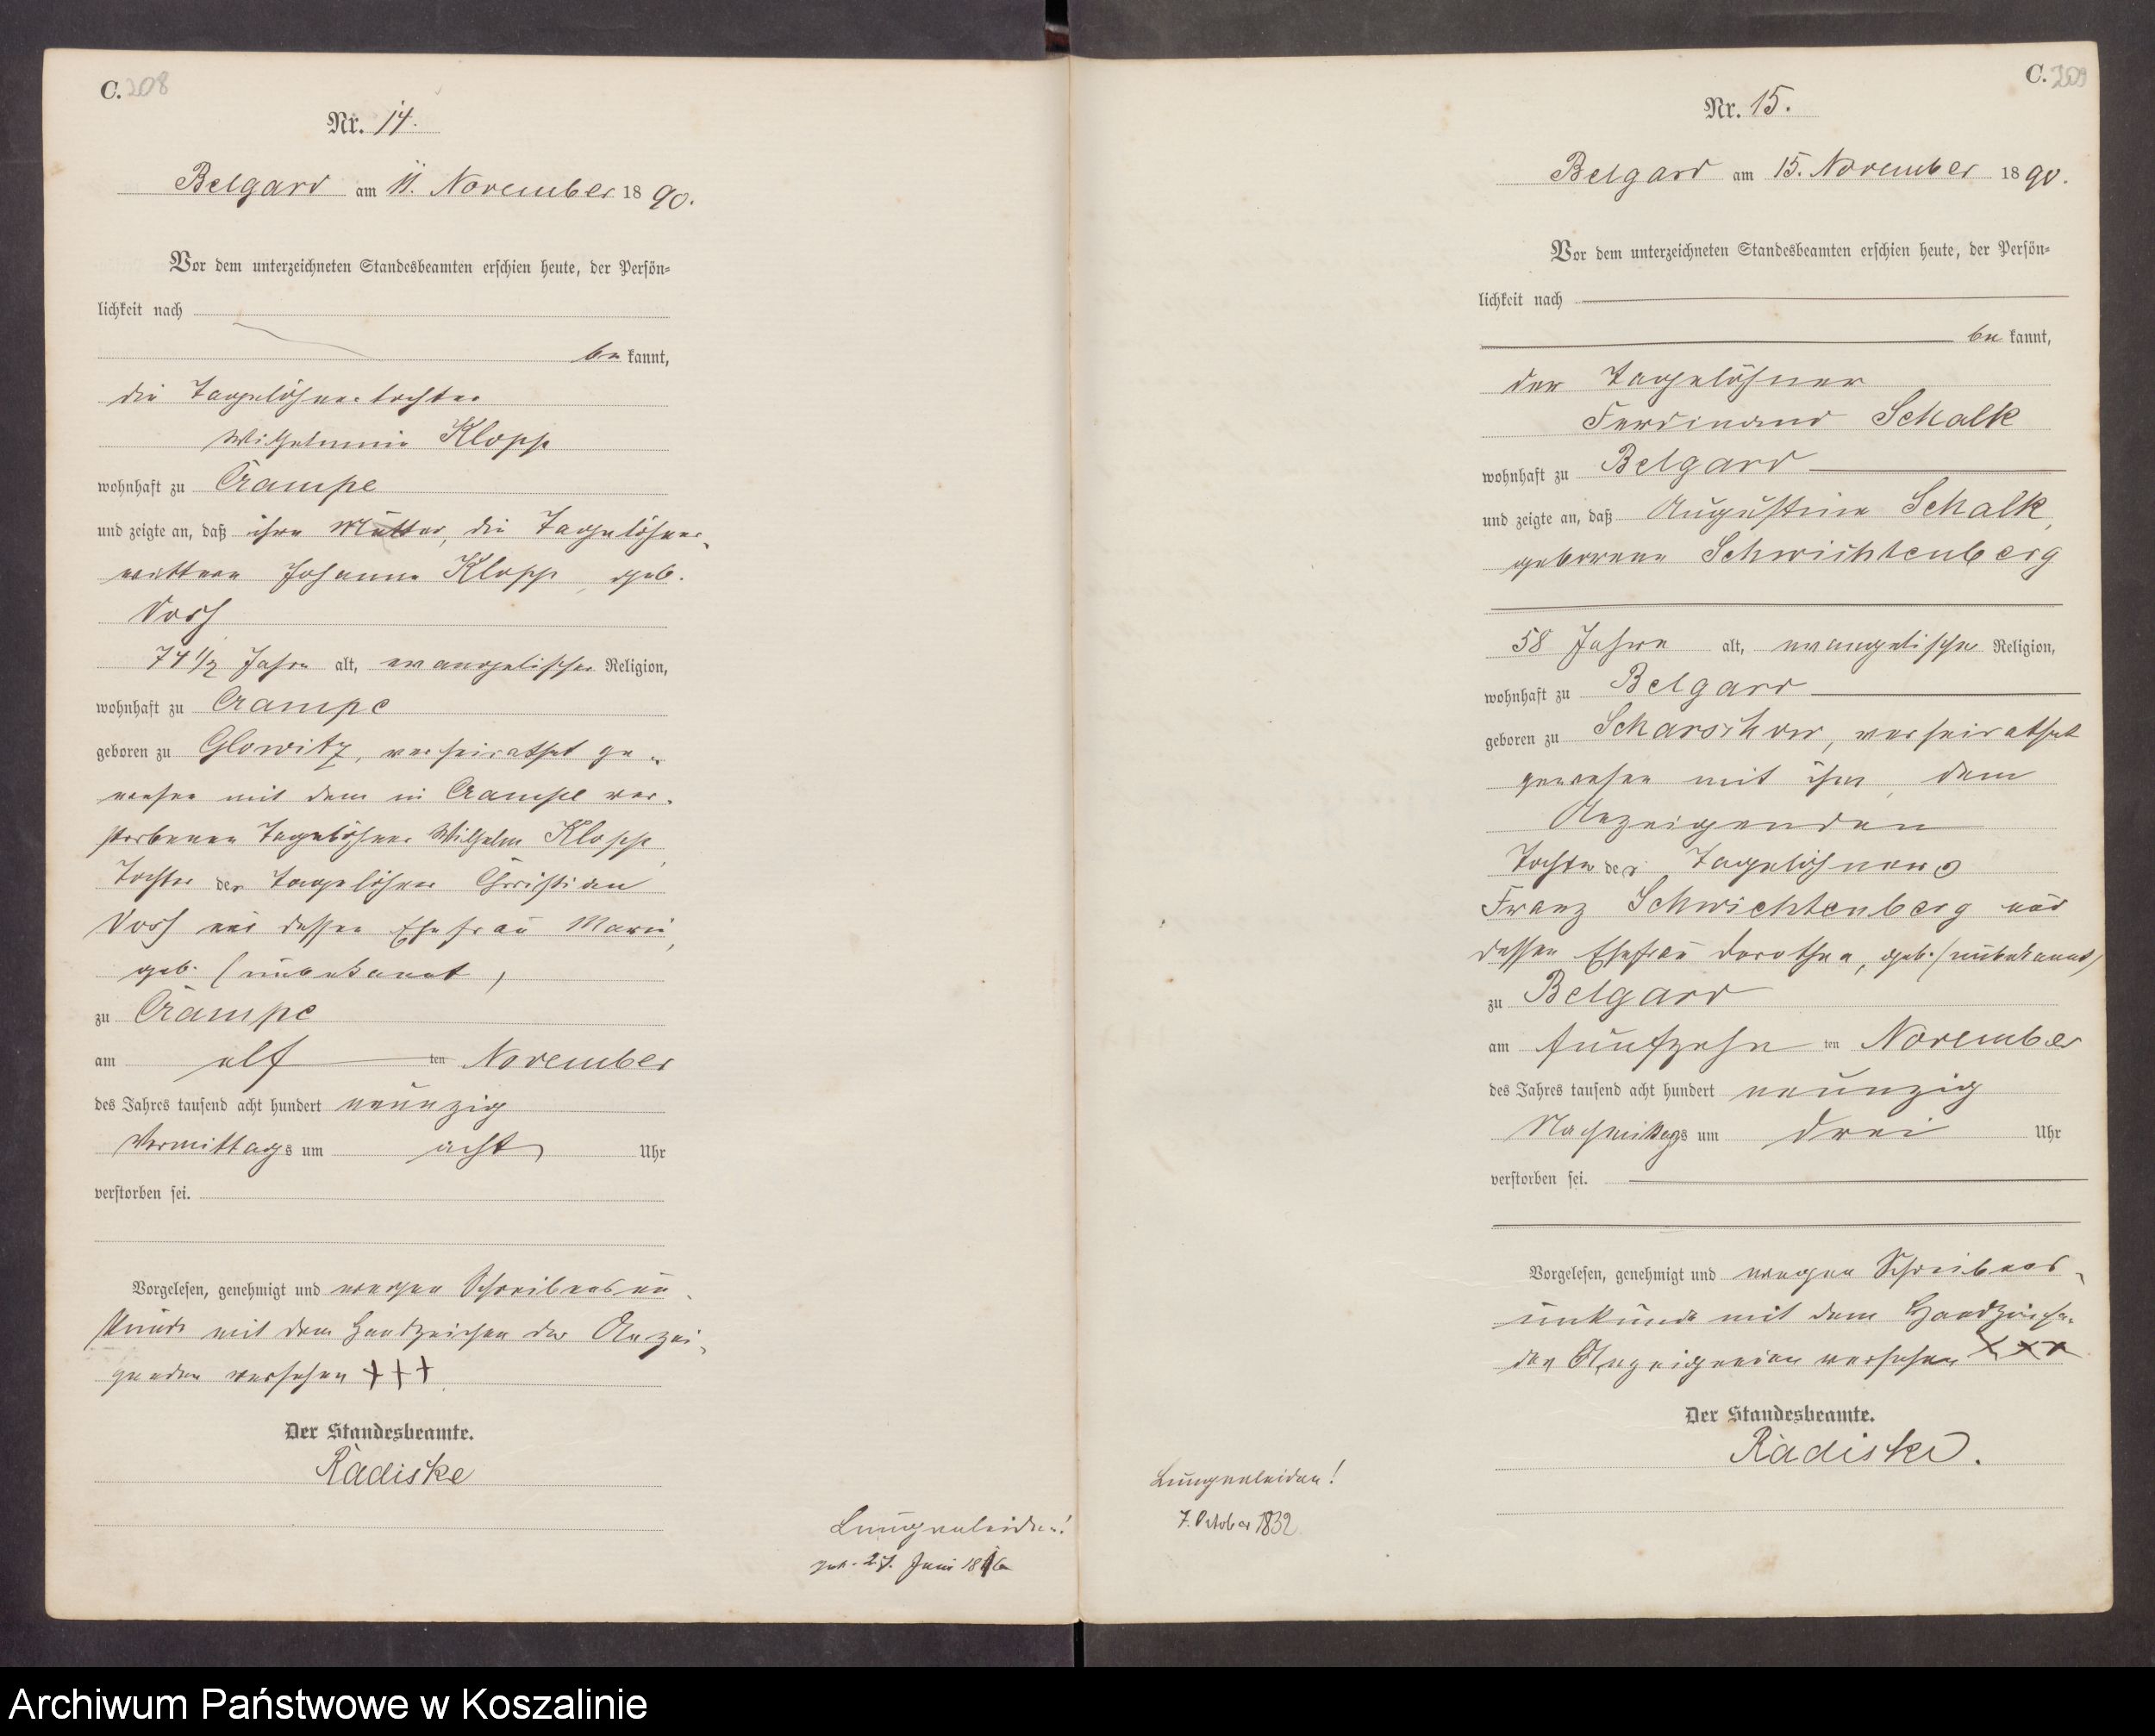 C. 208
Nr. 14.
Belgard am 11. November 1890.
Vor dem unterzeichneten Standesbeamten erschien heute, der Persön=
lichkeit nach
be kannt,
die Tagelöhnertochter
Wilhelmine Klopp
wohnhaft zu Crampe
und zeigte an, daß ihre Mutter, die Tagelöhner-
wittwe Johanne Klopp, geb.
Vosz
74 1/2 Jahre alt, evangelischer Religion,
wohnhaft zu Crampe
geboren zu Glowitz, verheirathet ge-
wesen mit dem in Crampe ver-
storbenen Tagelöhner Wilhelm Klopp,
Tochter der Tagelöhner Christian
und dessen Ehefrau Marie,
geb. (unbekannt)
zu Crampe
am elf ten November
des Jahres tausend acht hundert neunzig
Vormittags um acht Uhr
verstorben sei.
Vorgelesen, genehmigt und wegen Schreibensun-
kunde mit dem Handzeichen der Anzei-
genden versehen +++
Der Standesbeamte.
Radiske
Lungenleiden!
geb. 27. Juni 1816
C. 209
Nr. 15.
Belgard am 15. November 1890.
Vor dem unterzeichneten Standesbeamten erschien heute, der Persön=
lichkeit nach
be kannt,
der Tagelöhner
Ferdinand Schalk
wohnhaft zu Belgard
und zeigte an, daß Augustine Schalk,
geborene Schwichtenberg
58 Jahre alt, evangelischer Religion,
wohnhaft zu Belgard
geboren zu Scharschow, verheirathet
gewesen mit ihm, dem
Anzeigenden
Tochter des Tagelöhners
Franz Schwichtenberg und
dessen Ehefrau Dorothea, geb. (unbekannt)
zu Belgard
am fünfzehn ten November
des Jahres tausend acht hundert neunzig
Nachmittags um drei Uhr
verstorben sei.
Vorgelesen, genehmigt und wegen Schreibens-
unkunde mit dem Handzeichen
des Anzeigenden versehen XXX
Der Standesbeamte.
Radiske.
Lungenleiden!
7. October 1832
Archiwum Państwowe w Koszalinie